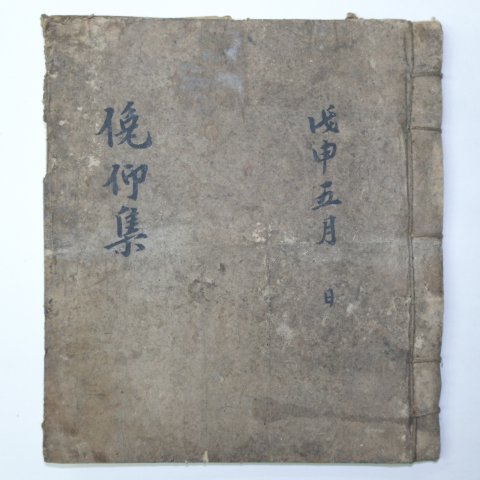 戊申五月 日
俛仰集